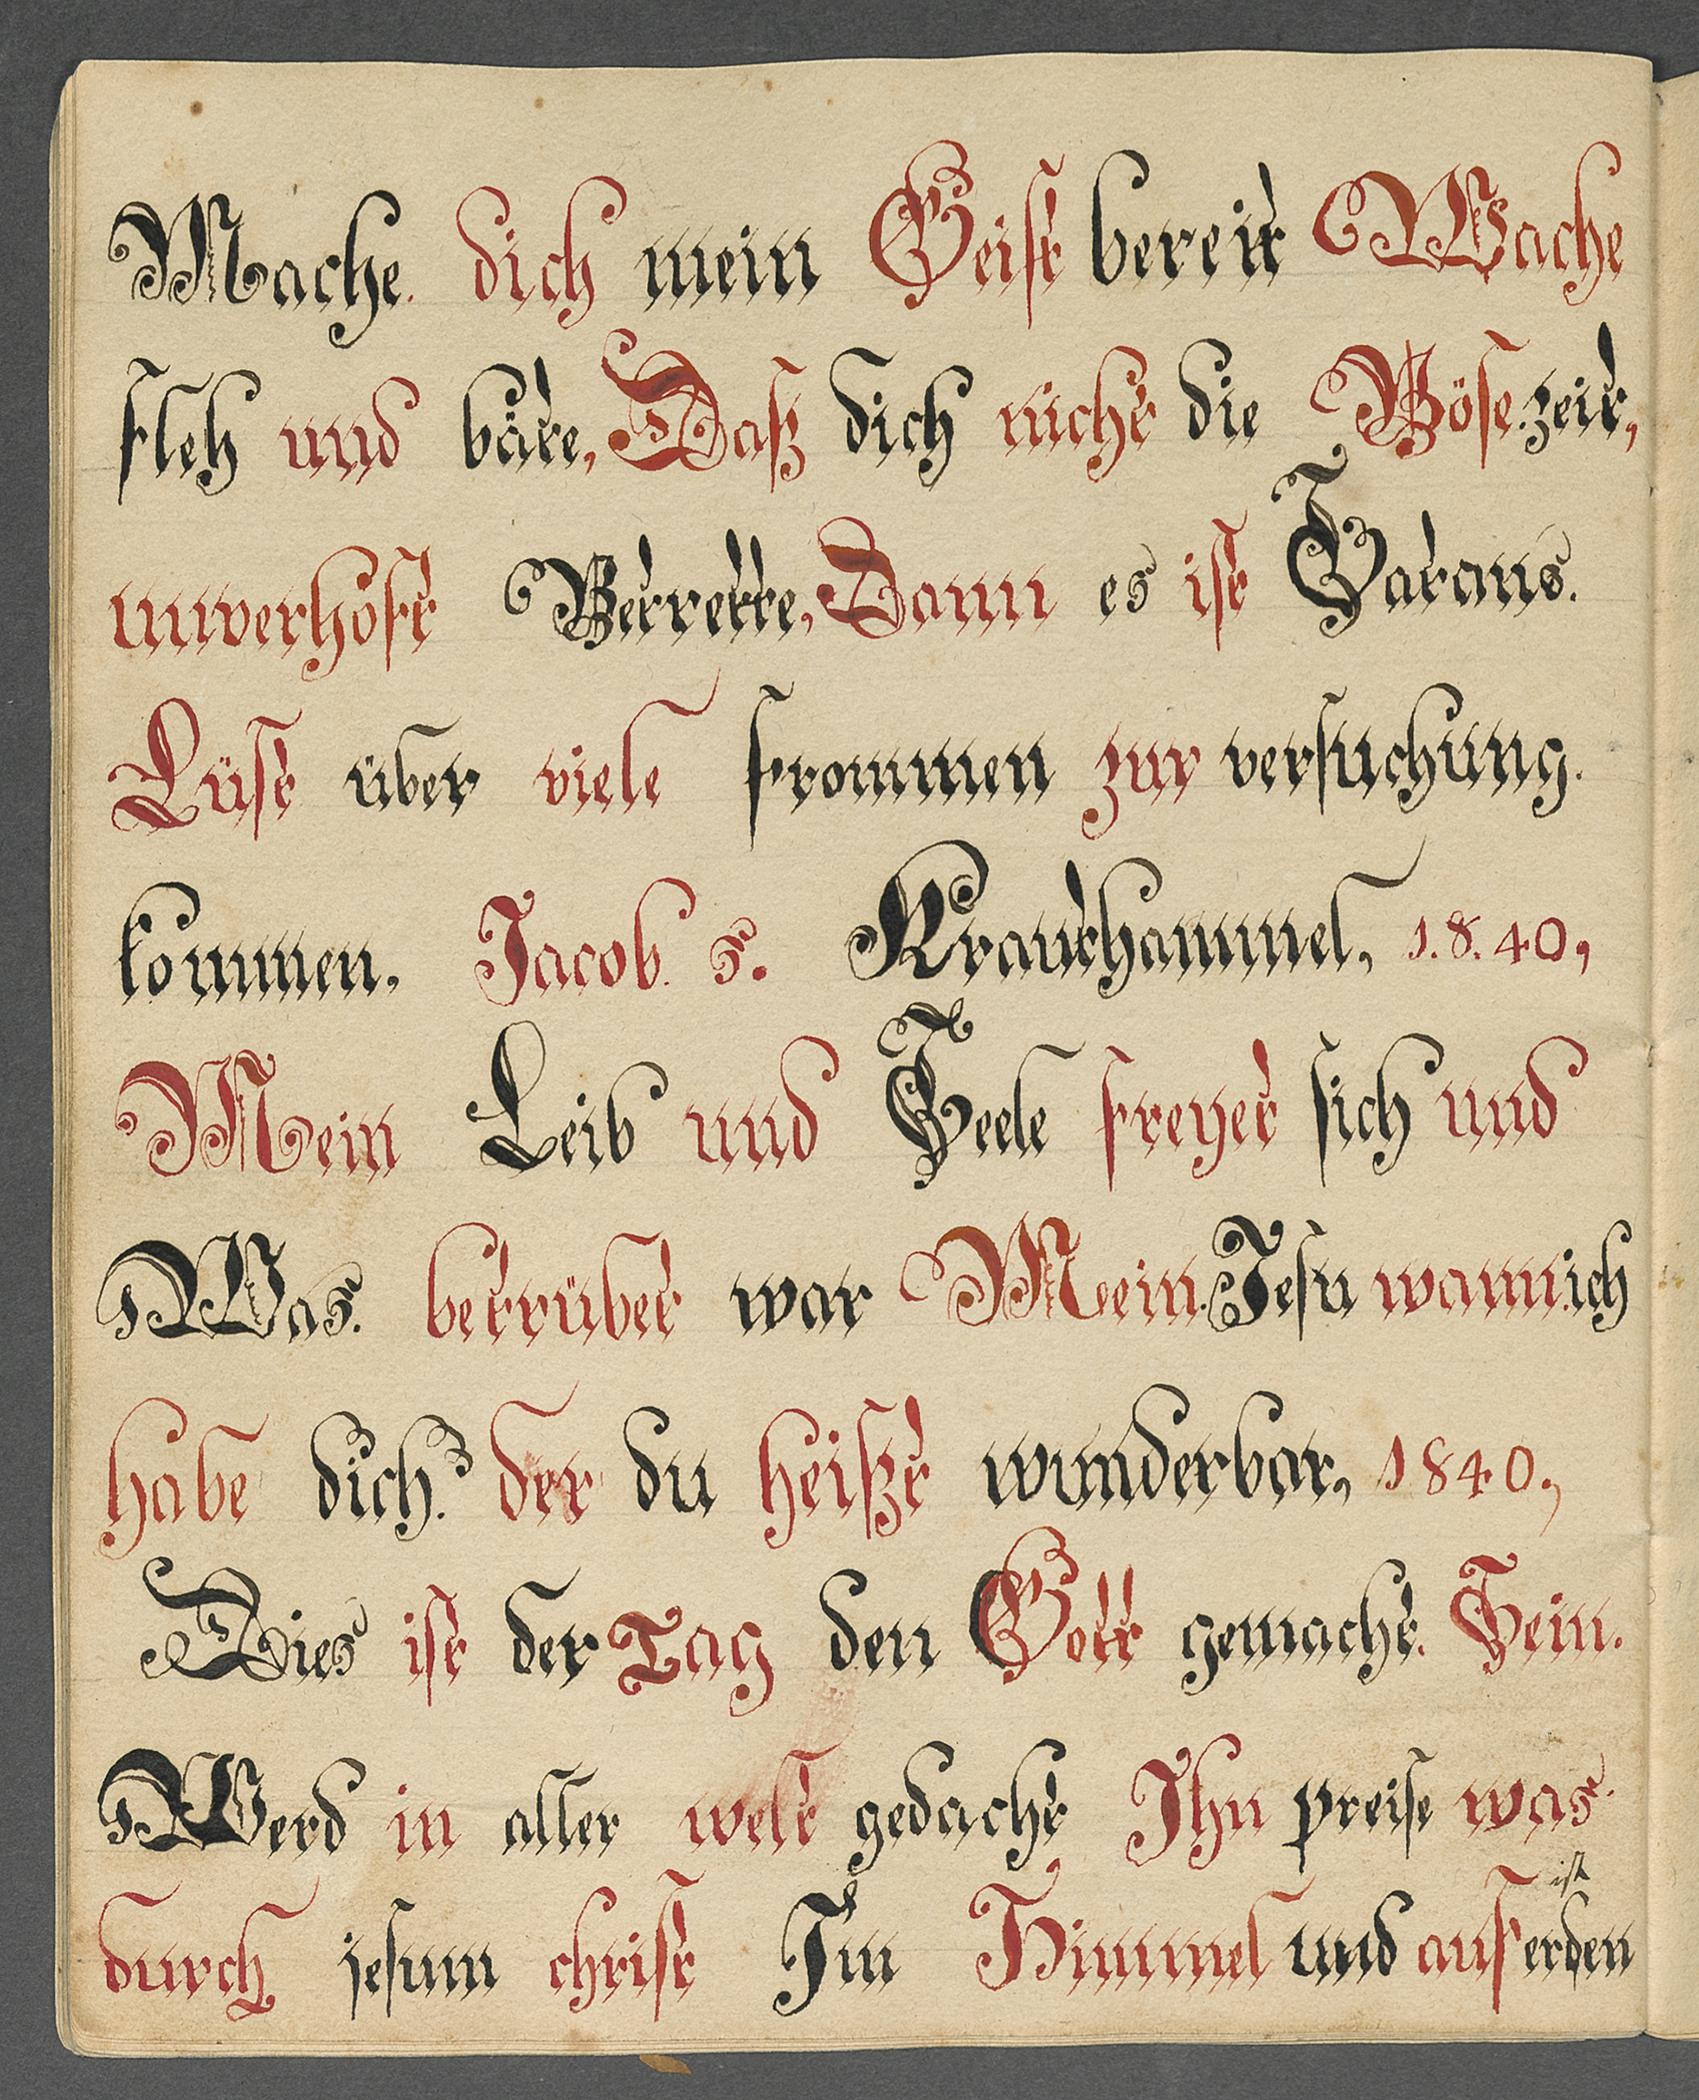 Mache. dich mein Geist bereit Wache
fleh und bäte, Daß dich nicht die Böse. zeit,
unverhoft Betrette, Dann es ist Satans.
Lüst über viele frommen zur versuchung.
kommen. Jacob. S. Krauthammel, 1.8.40,
Mein Leib und Seele freyet sich und
Was. betrübet war Mein. Jesu wann. ich
habe dich. der du heißt wunderbar, 1840,
Dies ist der Tag den Gott gemacht. Sein.
Werd in aller welt gedacht Ihn preise was
ist
durch jesum christ Im Himmel und auf erden